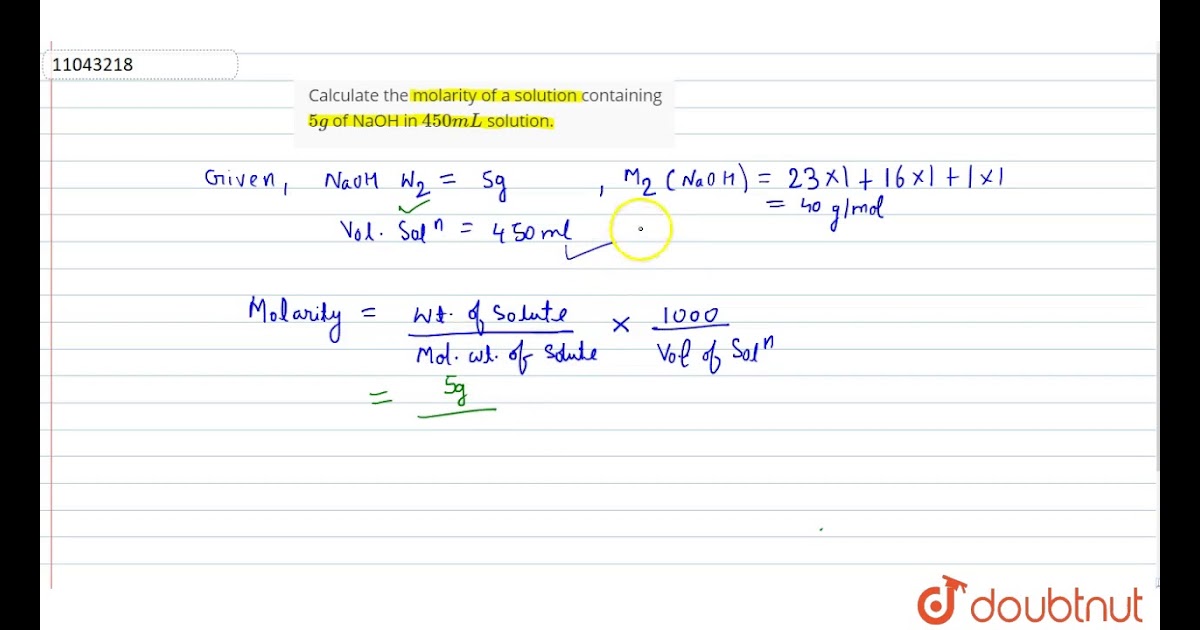 11043218
Calculate the molarity of a solution containing
5g of NaOH in 450mL solution.
Given, NaOH W₂ = 5g , M₂ (NaOH) = 23×1 + 16×1 + 1×1
= 40 g/mol
Vol. Solⁿ = 450ml
Molarity = Wt. of Solute / Mol. wt. of Solute × 1000 / Vol of Solⁿ
= 5g
doubtnut